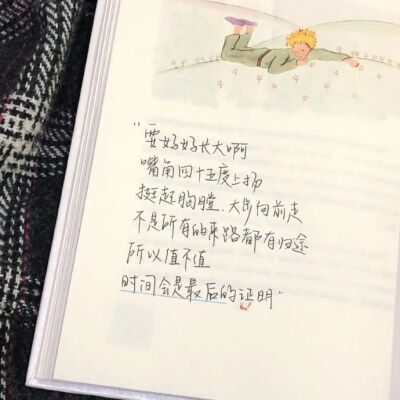 “要好好长大啊
嘴角四十五度上扬
挺起胸膛，大步向前走
不是所有的来路都有归途
所以值不值
时间会是最后的证明”